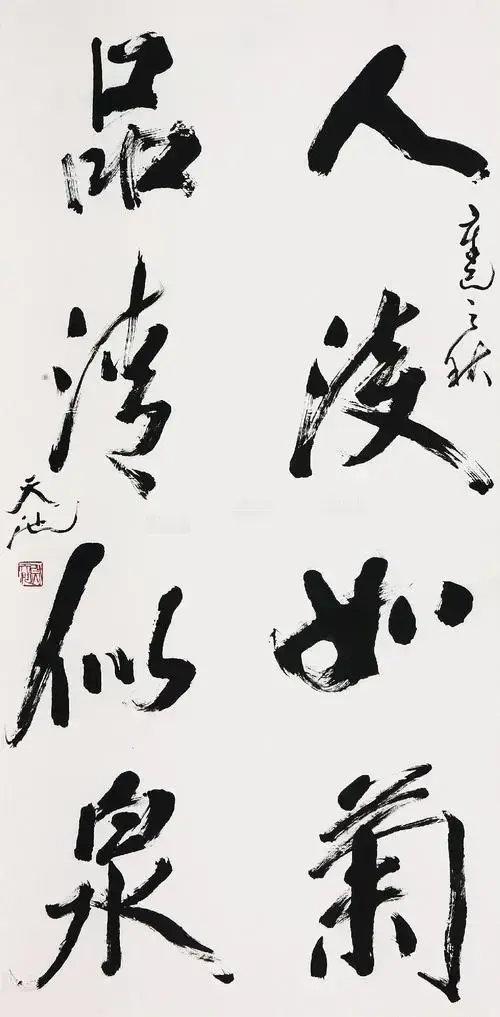 人淡如菊
之秋
品清似泉
天池